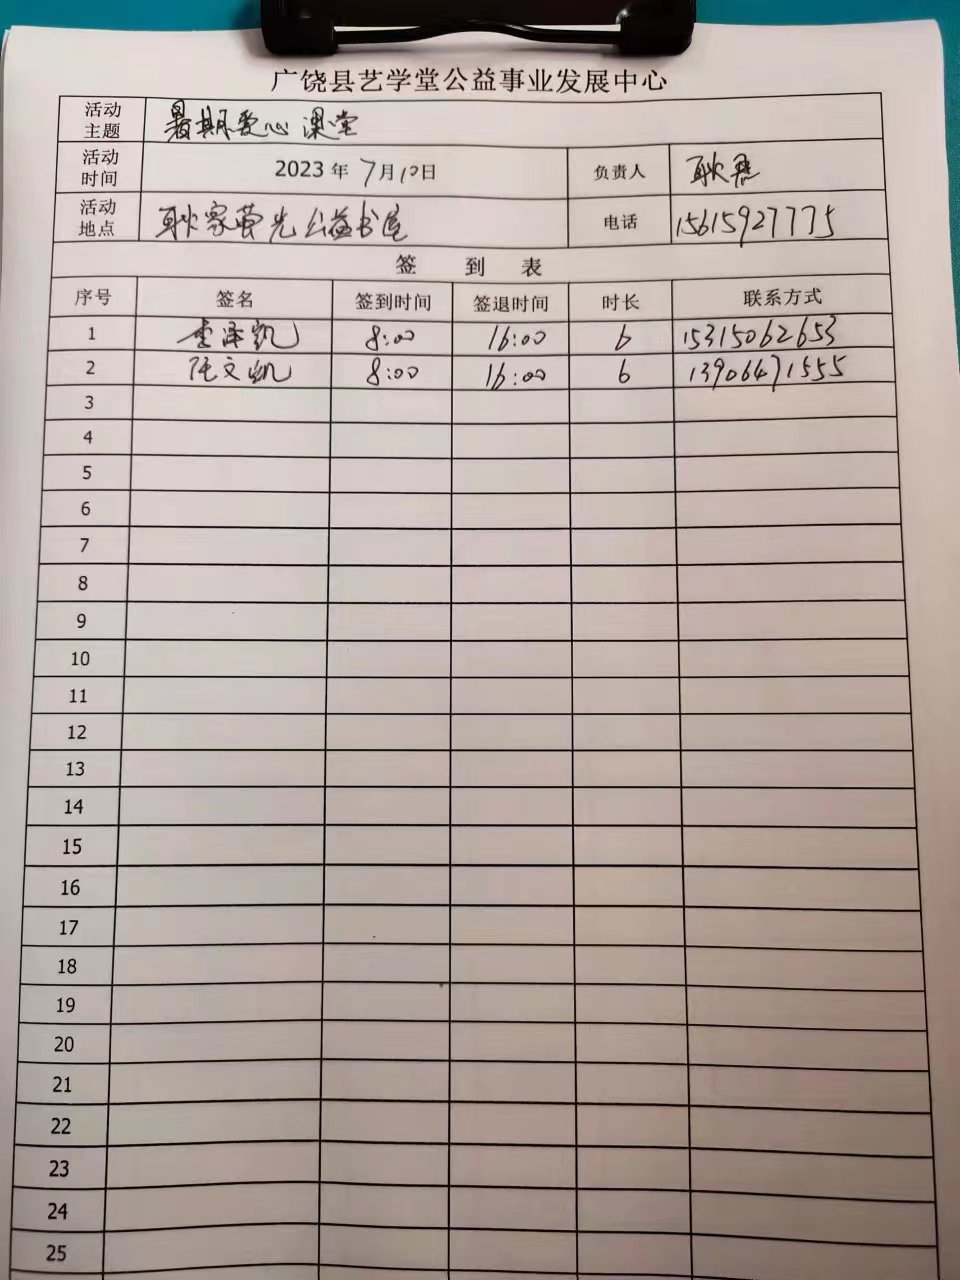 广饶县艺学堂公益事业发展中心
活动主题 暑期爱心课堂
活动时间 2023年7月10日 负责人 耿
活动地点 耿家萤光公益书屋 电话 15615927775
签到表
序号 签名 签到时间 签退时间 时长 联系方式
1 李泽凯 8:00 16:00 6 15315062653
2 张文凯 8:00 16:00 6 13906471555
3
4
5
6
7
8
9
10
11
12
13
14
15
16
17
18
19
20
21
22
23
24
25